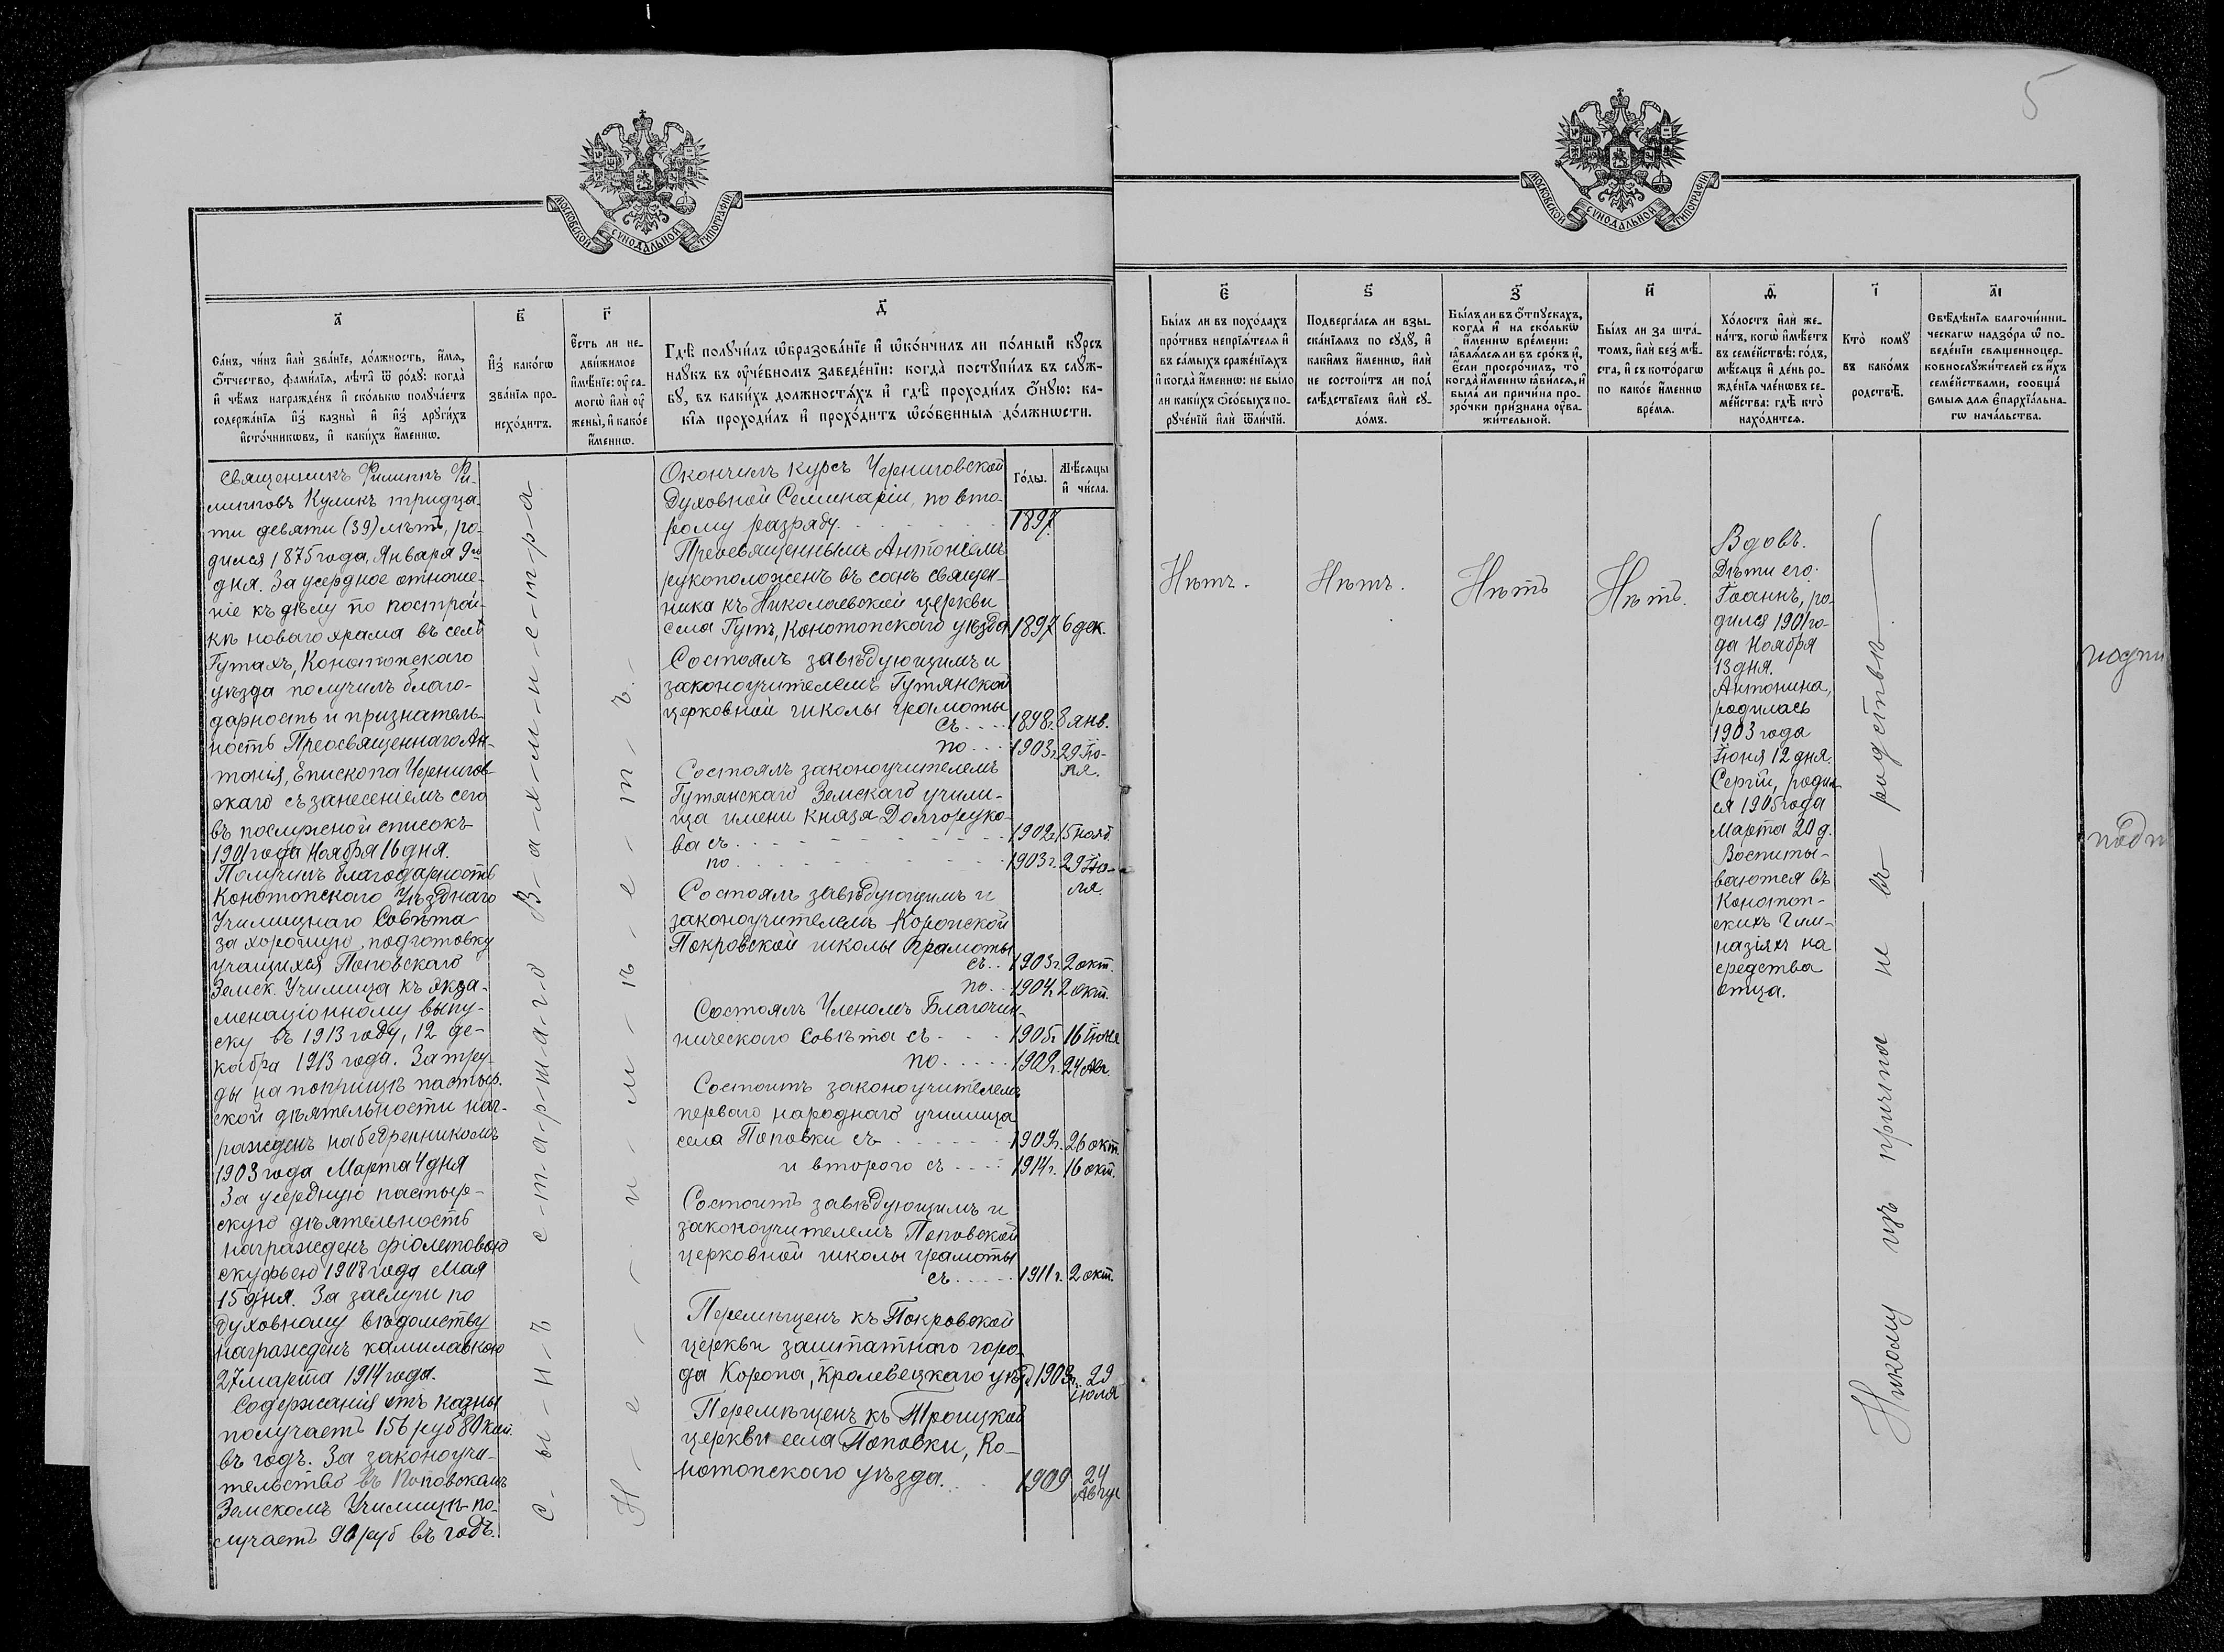 5
МОСКОВСКОЙ СѴНОДАЛЬНОЙ ТИПОГРАФІИ
МОСКОВСКОЙ СѴНОДАЛЬНОЙ ТИПОГРАФІИ
а҃
Са́нъ, чи́нъ и҆лѝ зва́нїе, до́лжность, и҆́мѧ,
ѻ҆́тчество, фами́лїѧ, лѣ́та ѿ ро́дꙋ: когда̀
и҆ чѣ́мъ награжде́нъ и҆ ско́лькѡ полꙋча́етъ
содержа́нїѧ и҆з̾ казны̀ и҆ и҆з̾ дрꙋги́хъ
и҆сто́чникѡвъ, и҆ каки́хъ и҆́меннѡ.
в҃
И҆з̾ како́гѡ
зва́нїѧ про-
исхо́дитъ.
г҃
Є҆́сть ли не-
дви́жимое
и҆мѣ́нїе: ᲂу҆ са-
могѡ̀ и҆лѝ ᲂу҆
жены̀, и҆ како́е
и҆́меннѡ.
д҃
Гдѣ̀ полꙋчи́лъ ѡ҆бразова́нїе и҆ ѡ҆ко́нчилъ ли по́лный кꙋ́рсъ
наꙋ́къ въ ᲂу҆че́бномъ заведе́нїи: когда̀ постꙋпи́лъ въ слꙋ́ж-
бꙋ, въ каки́хъ должностѧ́хъ и҆ гдѣ̀ проходи́лъ ѻ҆́нꙋю: ка-
кі́ѧ проходи́лъ и҆ прохо́дитъ ѡ҆со́бенныѧ до́лжнѡсти.
Го́ды.
Мѣ́сѧцы
и҆ чи́сла.
Священникъ Филиппъ Фи-
липповъ Куликъ тридца-
ти девяти (39) лѣтъ, ро-
дился 1875 года, Января 9го
дня. За усердное отноше-
ніе къ дѣлу по построй-
кѣ новаго храма въ селѣ
Гутахъ, Конотопскаго
уѣзда получилъ благо-
дарность и признатель-
ность Преосвященнаго Ан-
тонія, Епископа Чернигов-
скаго съ занесеніемъ сего
въ послужной списокъ
1901 года Ноября 16 дня.
Получилъ благодарность
Конотопскаго Уѣзднаго
Училищнаго Совѣта
за хорошую подготовку
учащихся Поповскаго
Земск. Училища къ экза-
менаціонному выпу-
ску въ 1913 году, 12 де-
кабря 1913 года. За тру-
ды на поприщѣ пастыр-
ской дѣятельности наг-
ражденъ набедренникомъ
1903 года Марта 4 дня
За усердную пастыр-
скую дѣятельность
награжденъ фіолетовою
скуфьею 1908 года Мая
15 дня. За заслуги по
духовному вѣдомству
награжденъ камилавкою
27 марта 1914 года.
Содержанія отъ казны
получаетъ 156 руб 80 коп.
въ годъ. За законоучи-
тельство въ Поповскомъ
Земскомъ Училищѣ по-
лучаетъ 90 руб въ годъ.
С-ы-н-ъ с-т-а-р-ш-а-г-о В-а-х-м-и-с-т-р-а
Н-е- -и-м-ѣ-е-т-ъ.
Окончилъ курсъ Черниговской
Духовной Семинаріи, по вто-
рому разряду. 1897.
Преосвященнымъ Антоніемъ
рукоположенъ въ санъ священ-
ника къ Николаевской церкви
села Гутъ, Конотопскаго уѣзда 1897 6 дек.
Состоялъ завѣдующимъ и
законоучителемъ Гутянской
церковной школы грамоты
съ.... 1898г. 8 янв.
по... 1903г. 29 Ію-
ля.
Состоялъ законоучителемъ
Гутянскаго Земскаго учили-
ща имени Князя Долгоруко-
ва съ 1902г. 15 нояб.
по 1903г. 29 Ію-
ля.
Состоялъ завѣдующимъ и
законоучителемъ Коропской
Покровской школы Грамоты
съ.. 1903г. 2 окт.
по.. 1904г. 2 окт.
Состоялъ Членомъ Благочин-
ническаго Совѣта съ 1905г. 16 Іюня
по 1909г. 24 Авг.
Состоитъ законоучителемъ
перваго народнаго училища
села Поповки съ 1909г. 26 окт.
и второго съ 1914г. 16 окт.
Состоитъ завѣдующимъ и
законоучителемъ Поповской
церковной школы грамоты
съ 1911г. 2 окт.
Перемѣщенъ къ Покровской
церкви заштатнаго горо-
да Коропа, Кролевецкаго уѣзд 1903г. 29
іюля
Перемѣщенъ къ Троицкой
церкви села Поповки, Ко-
нотопскаго уѣзда. 1909 24
Авгус
є҃
Бы́лъ ли въ похо́дахъ
про́тивъ непрїѧ́телѧ и҆
въ са́мыхъ сраже́нїѧхъ
и҆ когда̀ и҆́меннѡ: не бы́ло
ли каки́хъ ѻ҆со́быхъ по-
рꙋче́нїй и҆лѝ ѿли́чїй.
ѕ҃
Подверга́лсѧ ли взы-
ска́нїѧмъ по сꙋдꙋ̀, и҆
каки̑мъ и҆́меннѡ, и҆лѝ
не состои́тъ ли под̾
слѣ́дствїемъ и҆лѝ сꙋ-
до́мъ.
з҃
Бы́лъ ли въ ѻ҆́тпꙋскахъ,
когда̀ и҆ на ско́лькѡ
и҆́меннѡ вре́мени:
ꙗ҆влѧ́лсѧ ли въ сро́къ и҆,
є҆́сли просро́чилъ, то̀
когда̀ и҆́меннѡ ꙗ҆ви́лсѧ, и҆
была̀ ли причи́на про-
сро́чки при́знана ᲂу҆ва-
жи́тельной.
и҃
Бы́лъ ли за шта́-
томъ, и҆лѝ без̾ мѣ́-
ста, и҆ съ кото́рагѡ
по како́е и҆́меннѡ
вре́мѧ.
ѳ҃
Хо́лостъ и҆лѝ же-
на́тъ, когѡ̀ и҆мѣ́етъ
въ семе́йствѣ: го́дъ,
мѣ́сѧцъ и҆ де́нь ро-
жде́нїѧ чле́нѡвъ се-
ме́йства: гдѣ̀ кто̀
нахо́дитсѧ.
і҃
Кто̀ комꙋ̀
въ како́мъ
родствѣ̀.
а҃і
Свѣ́дѣнїѧ благочи́нни-
ческагѡ надзо́ра ѡ҆ по-
веде́нїи свѧщенноцер-
ковнослꙋжи́телей съ и҆́хъ
семе́йствами, сообща́-
ємыѧ для є҆парха́льна-
гѡ нача́льства.
Нѣтъ.
Нѣтъ.
Нѣтъ
Нѣтъ.
Вдовъ.
Дѣти его:
Іоаннъ, ро-
дился 1901 го-
да Ноября
13 дня.
Антонина,
родилась
1903 года
Іюня 12 дня.
Сергій, родил-
ся 1905 года
Марта 20 д.
Воспиты-
ваются въ
Конотоп-
скихъ Гим-
назіяхъ на
средства
отца.
Никому изъ причта не въ родствѣ